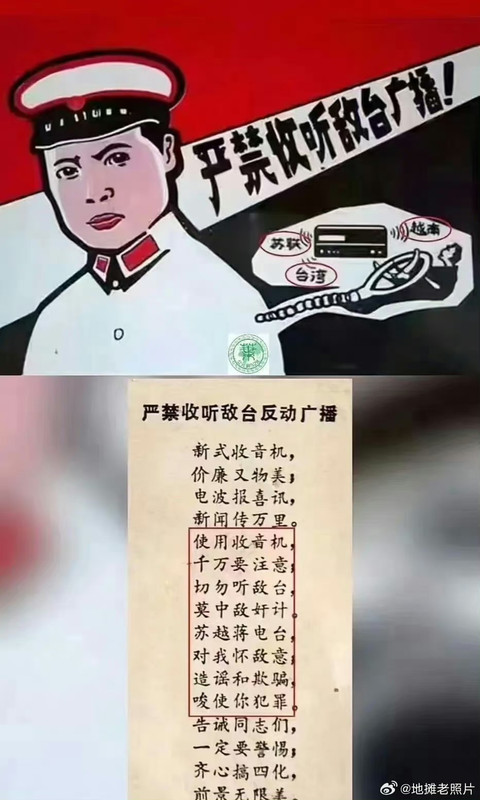 严禁收听敌台广播!
苏联
越南
台湾
严禁收听敌台反动广播
新式收音机,
价廉又物美;
电波报喜讯,
新闻传万里。
使用收音机,
千万要注意;
切勿听敌台,
莫中敌奸计。
苏越蒋电台,
对我怀敌意;
造谣和欺骗,
唆使你犯罪。
告诫同志们,
一定要警惕;
齐心搞四化,
前景无限美。
@地摊老照片